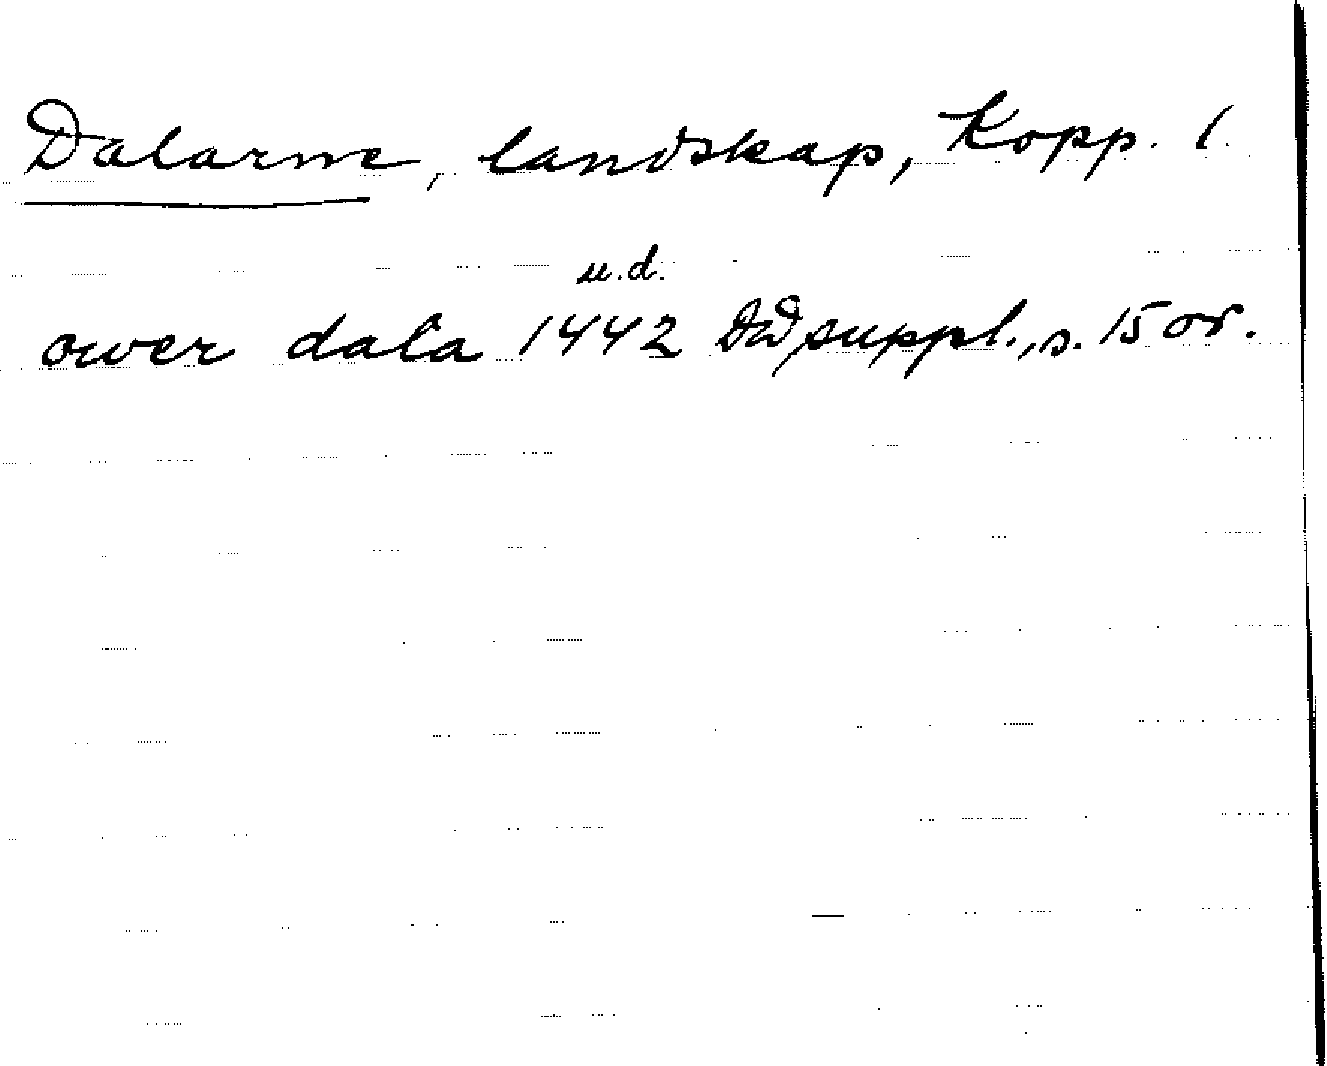 Dalarne, landskap, Kopp. l.
u.d.
över dala 1442 DD suppl., s. 15 or.